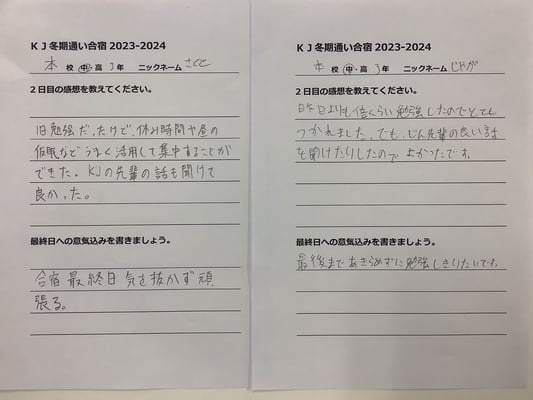 KJ冬期通い合宿 2023-2024
本 校 中・高 3 年 ニックネーム さくと
2日目の感想を教えてください。
1日勉強だったけど、休み時間や昼の
仮眠などうまく活用して集中することが
できた。KJの先輩の話も聞けて
良かった。
最終日への意気込みを書きましょう。
合宿最終日気を抜かず頑
張る。
KJ冬期通い合宿 2023-2024
本 校 中・高 3 年 ニックネーム じゃが
2日目の感想を教えてください。
昨日よりも倍くらい勉強したのでとても
つかれました。でも、じん先輩の良い話
を聞けたりしたのでよかったです。
最終日への意気込みを書きましょう。
最後まであきらめずに勉強しきりたいです。